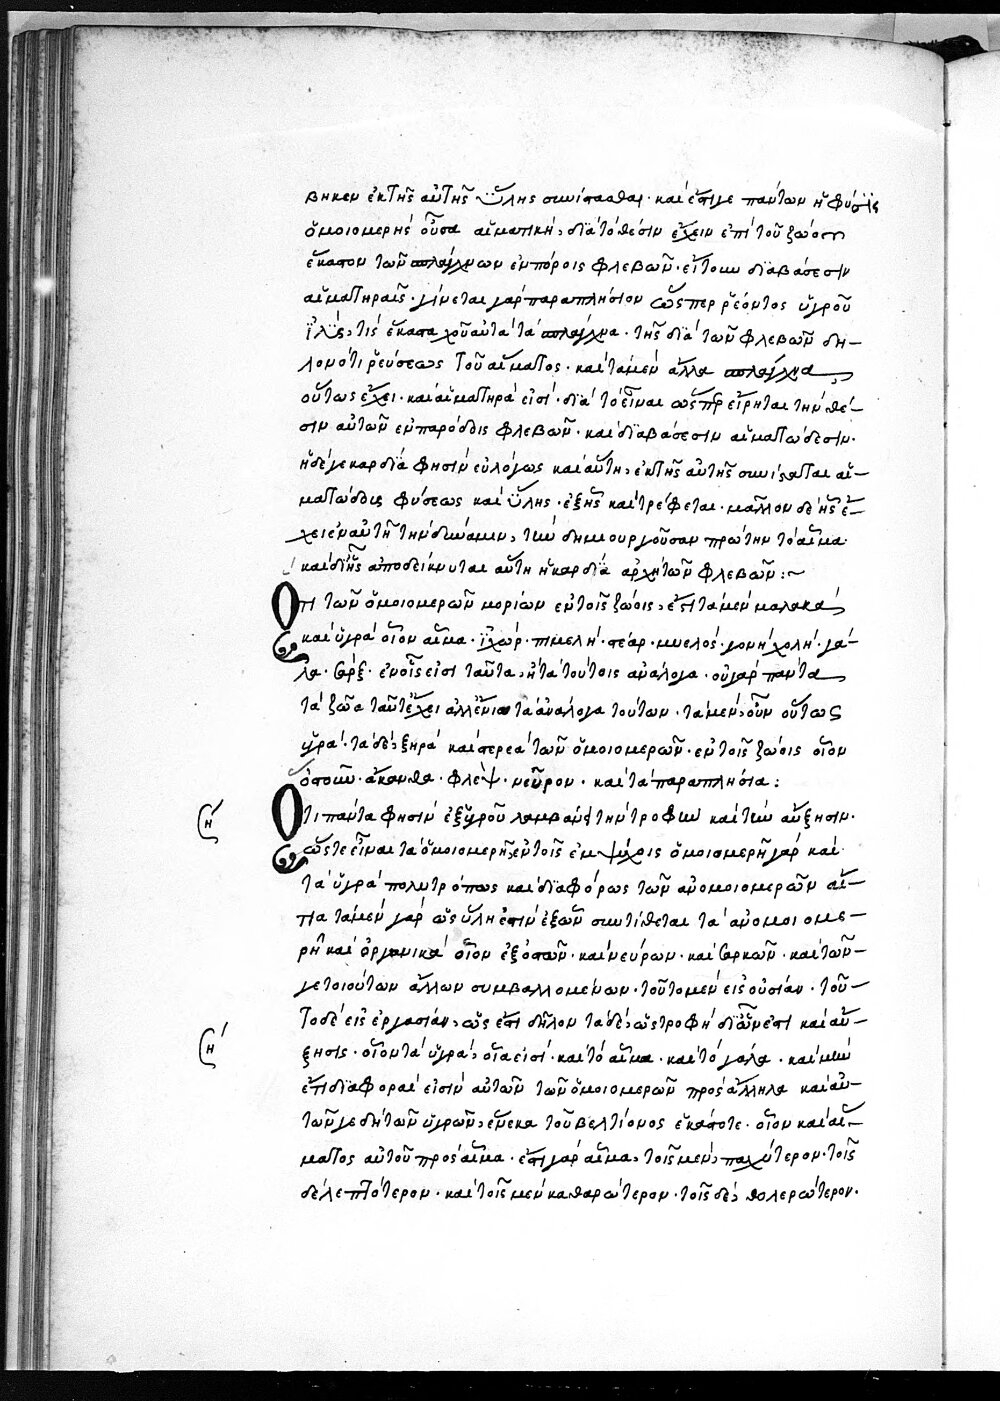 βηκεν ἐκ τῆς αὐτῆς ὕλης συνίστασθαι· καὶ ἔστι γε πάντων ἡ φύσις
ὁμοιομερὴς οὖσα αἱματική, διὰ τὸ θέσιν ἔχειν ἐπὶ τοῦ ζώου
ἕκαστον τῶν σπλάγχνων ἐν πόροις φλεβῶν· εἴτουν διαβάσεσιν
αἱματηραῖς· γίνεται γὰρ παραπλήσιον ὥσπερ ῥέοντος ὑγροῦ
ἰλύς, τις ἕκαστα χοῦ αὐτὰ τὰ σπλάγχνα· τῆς διὰ τῶν φλεβῶν δη–
λονότι ῥεύσεως τοῦ αἵματος· καὶ τὰ μὲν ἄλλα σπλάγχνα
οὕτως ἔχει· καὶ αἱματηρά εἰσι· διὰ τὸ εἶναι ὥσπερ εἴρηται τὴν θέ–
σιν αὐτῶν ἐν παρόδοις φλεβῶν· καὶ διαβάσεσιν αἱματώδεσιν·
ἡ δέ γε καρδία φησὶν εὐλόγως καὶ αὕτη, ἐκ τῆς αὐτῆς συνίσταται αἱ–
ματώδους φύσεως καὶ ὕλης· ἐξ ἧς καὶ τρέφεται· μᾶλλον δὲ ἧς ἔ–
χει ἐν αὐτῇ τὴν δύναμιν, τὴν δημιουργοῦσαν πρώτην τὸ αἷμα·
καὶ δι' ἧς ἀποδείκνυται αὕτη ἡ καρδία ἀρχὴ τῶν φλεβῶν:~
Ὅτι τῶν ὁμοιομερῶν μορίων ἐν τοῖς ζώοις, ἔστι τὰ μὲν μαλακὰ
καὶ ὑγρὰ οἷον αἷμα· ἰχώρ· πιμελή· στέαρ· μυελός· γονή· χολή· γά–
λα· σάρξ· ἐν οἷς εἰσι ταῦτα, ἢ τὰ τούτοις ἀνάλογα· οὐ γὰρ πάντα
τὰ ζῶα ταῦτ' ἔχει ἀλλ' ἔνια τὰ ἀνάλογα τούτων· τὰ μὲν, οὖν οὕτως
ὑγρά· τὰ δὲ, ξηρὰ καὶ στερεὰ τῶν ὁμοιομερῶν· ἐν τοῖς ζώοις οἷον
ὀστοῦν· ἄκανθα· φλέψ· νεῦρον· καὶ τὰ παραπλήσια:
Ὅτι πάντα φησὶν ἐξ ὑγροῦ λαμβάνει τὴν τροφὴν καὶ τὴν αὔξησιν·
ὥστε εἶναι τὰ ὁμοιομερῆ, ἐν τοῖς ἐμψύχοις ὁμοιομερῆ γὰρ καὶ
τὰ ὑγρὰ πολυτρόπως καὶ διαφόρως τῶν ἀνομοιομερῶν αἴ–
τια τὰ μὲν γὰρ ὡς ὕλη ἐστὶν ἐξ ὧν συντίθεται τὰ ἀνομοιομε–
ρῆ καὶ ὀργανικὰ οἷον ἐξ ὀστῶν· καὶ νεύρων· καὶ σαρκῶν· καὶ τῶν–
γε τοιούτων ἄλλων συμβαλλομένων· τοῦτο μὲν εἰς οὐσίαν· τοῦ–
το δὲ εἰς ἐργασίαν, ὥς ἐστι δῆλον τὰ δὲ, ὡς τροφὴ δι' ὧν ἐστι καὶ αὔ–
ξησις· οἷον τὰ ὑγρὰ, οἷά εἰσι· καὶ τὸ αἷμα· καὶ τὸ γάλα· καὶ μὴν
ἔτι διαφοραί εἰσιν αὐτῶν τῶν ὁμοιομερῶν πρὸς ἄλληλα καὶ αὐ–
τῶν γε δὴ τῶν ὑγρῶν, ἕνεκα τοῦ βελτίονος ἑκάστοτε· οἷον καὶ αἵ–
ματος αὐτοῦ πρὸς αἷμα· ἔστι γὰρ αἷμα, τοῖς μὲν, παχύτερον· τοῖς
δὲ λεπτότερον· καὶ τοῖς μὲν καθαρώτερον· τοῖς δὲ, θολερώτερον·